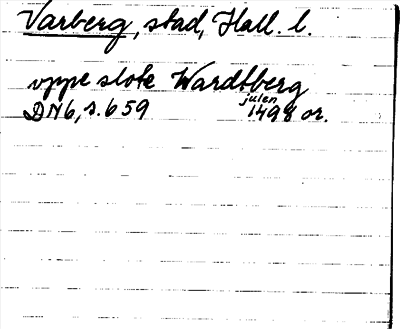 Varberg, stad, Hall. l.
vppe slote Wardtberg
DN6, s. 659 julen 1498 or.